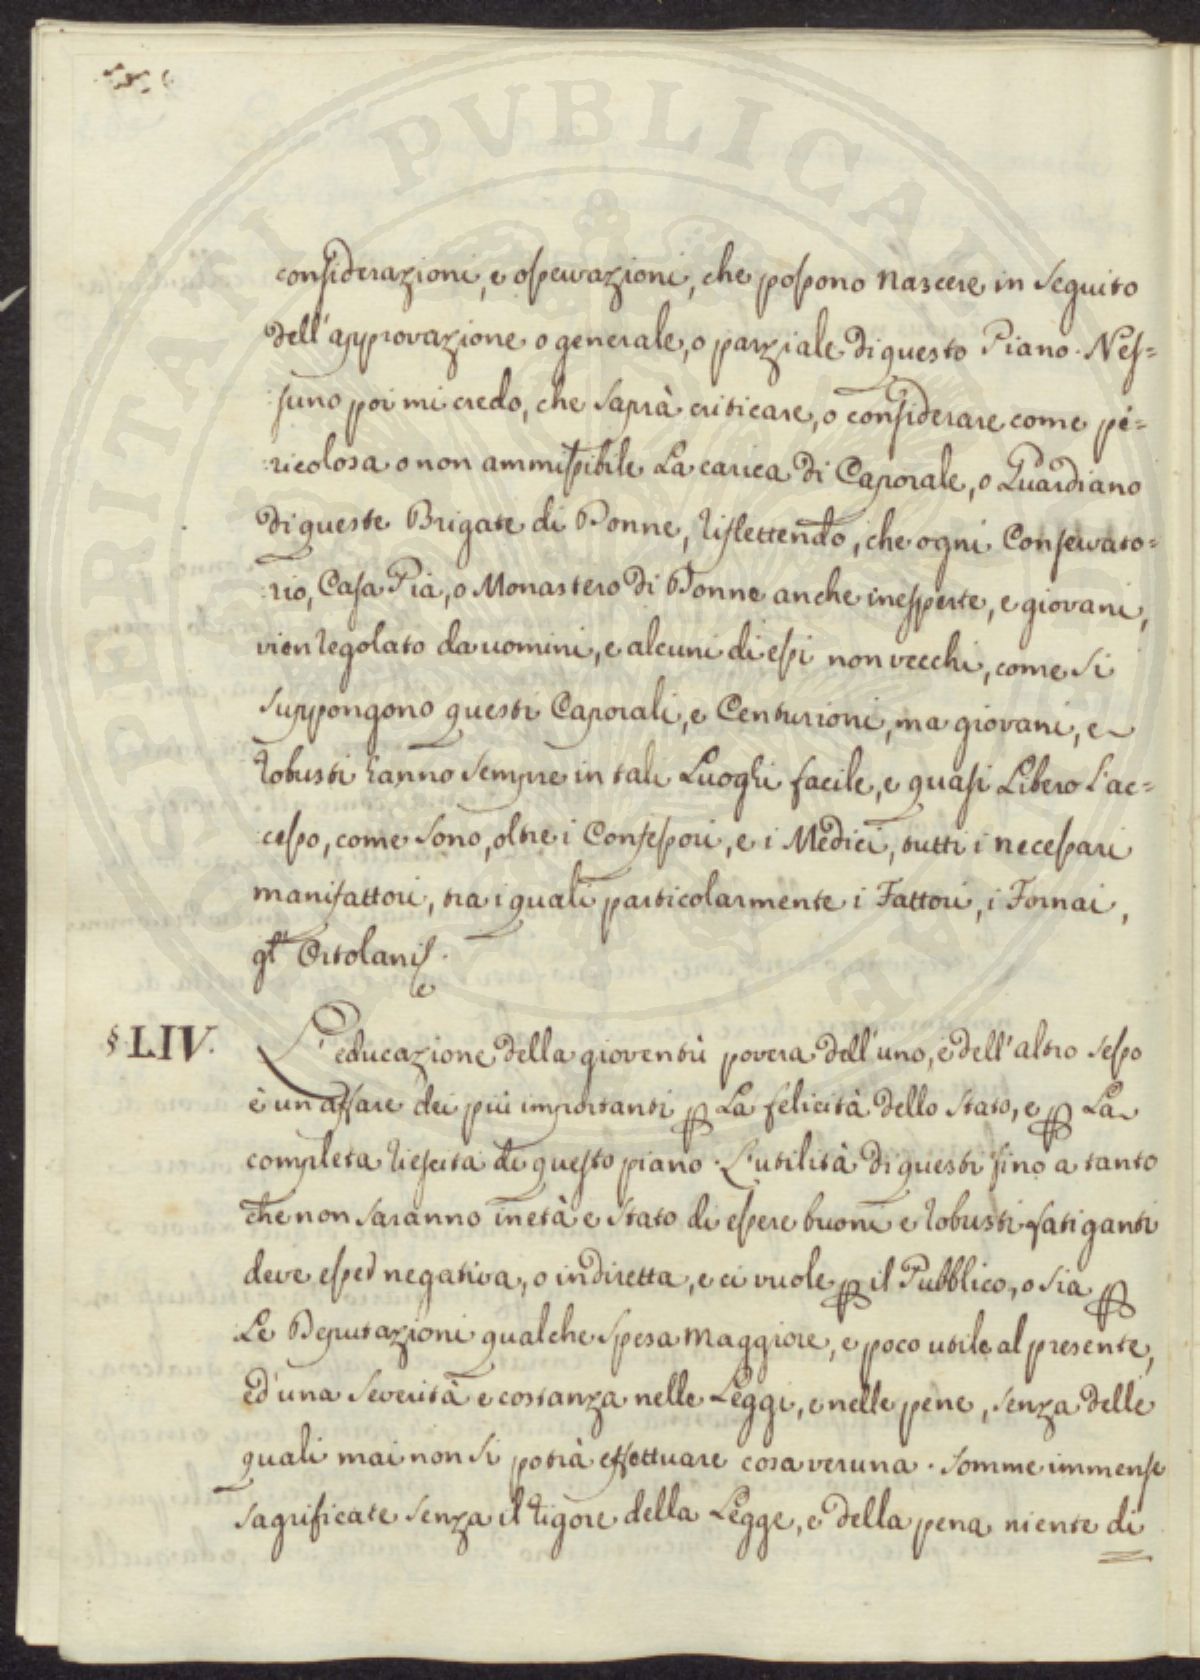 PROSPERITATI PUBLICAE
considerazioni, e osservazioni, che possono nascere in seguito
dell'approvazione o generale, o parziale di questo Piano. Nes=
suno poi mi credo, che saprà criticare, o considerare come pe=
ricolosa o non ammissibile La carica di Caporale, o Guardiano
di queste Brigate di Donne, riflettendo, che ogni Conservato=
rio, Casa Pia, o Monastero di Donne anche inesperte, e giovani,
vien regolato da uomini, e alcuni di essi non vecchi, come si
suppongono questi Caporali, e Centurioni, ma giovani, e
robusti hanno sempre in tali Luoghi facile, e quasi Libero l'ac=
cesso, come sono, oltre i Confessori, e i Medici, tutti i necessari
manifattori, tra i quali particolarmente i Fattori, i Fornai,
gl' Ortolani &
§ LIV. L'educazione della gioventù povera dell'uno, e dell'altro sesso
è un affare dei più importanti ꝑ La felicità dello Stato, e ꝑ La
completa riescita di questo piano. L'utilità di questi sino a tanto
che non saranno in età e stato di essere buoni e robusti fatiganti
deve esser negativa, o indiretta, e ci vuole ꝑ il Pubblico, o sia ꝑ
Le Deputazioni qualche spesa maggiore, e poco utile al presente,
ed una severità e costanza nelle Leggi, e nelle pene, senza delle
quali mai non si potrà effettuare cosa veruna. Somme immense
sagrificate senza il rigore della Legge, e della pena niente di